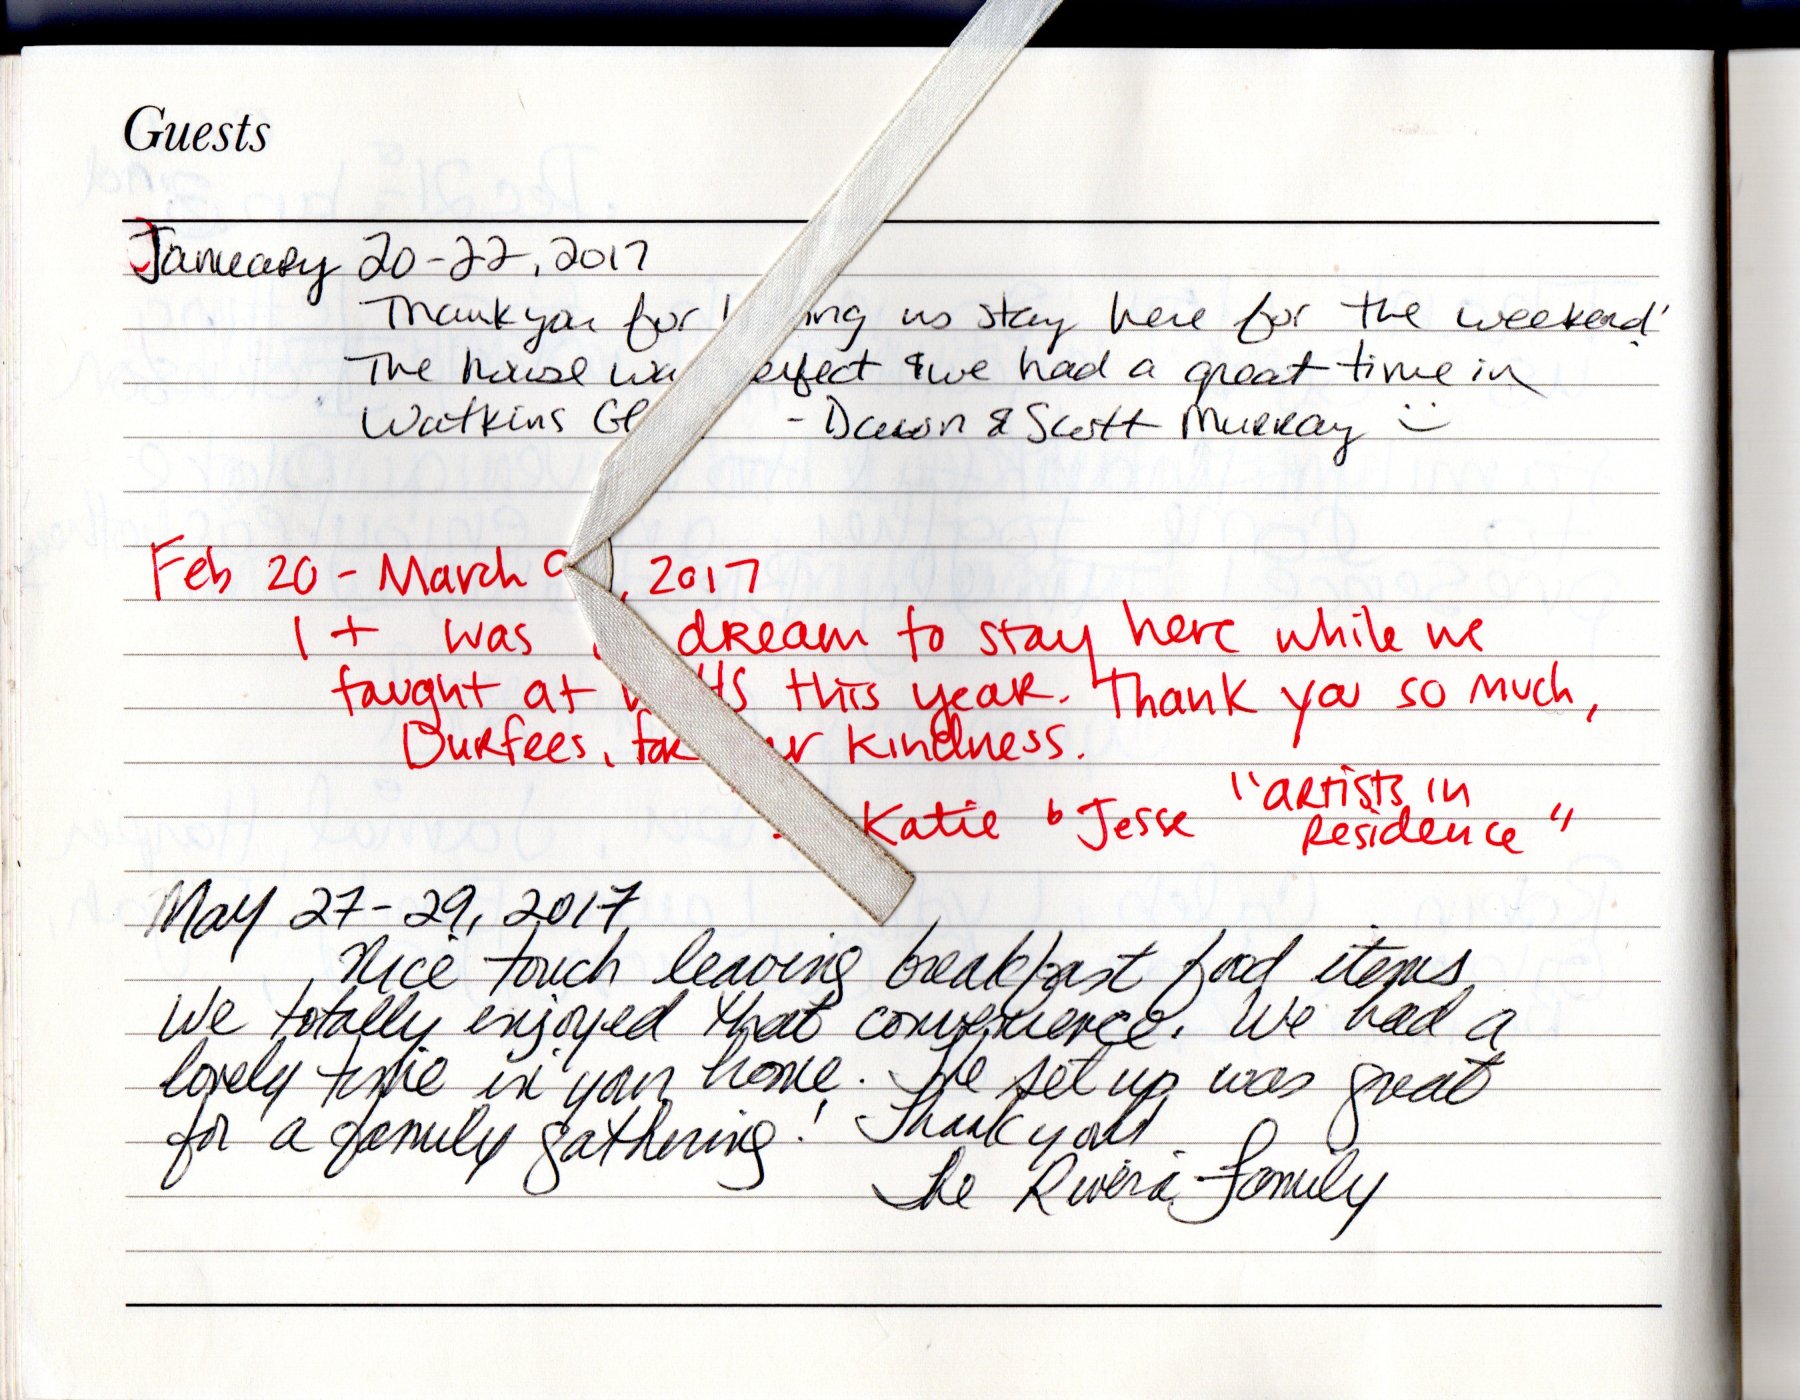 Guests
January 20-22, 2017
Thank you for us stay here for the weekend!
The house we had a great time in
Watkins - Dawn & Scott Murray :)
Feb 20 - March , 2017
It was dream to stay here while we
taught at this year. Thank you so much,
Durfees, for kindness.
Katie & Jesse "artists in
residence"
May 27-29, 2017
Nice touch leaving breakfast food items
We totally enjoyed that convenience. We had a
lovely time in your home. The set up was great
for a family gathering! Thank you!
The Rivera Family